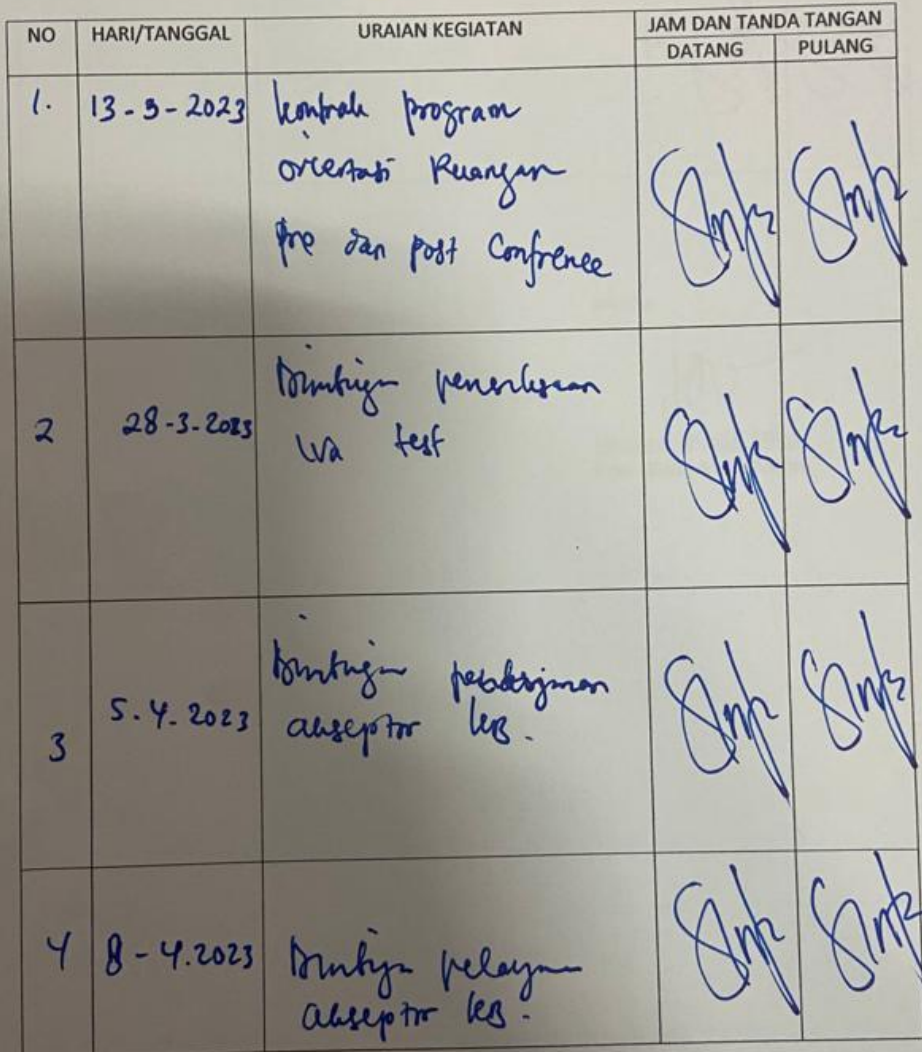 NO HARI/TANGGAL URAIAN KEGIATAN JAM DAN TANDA TANGAN
DATANG PULANG
1. 13-3-2023 kontrak program
orientasi Ruangan
pre dan post Confrence
2 28-3-2023 Bimbingan pemeriksaan
iva test
3 5.4.2023 Bimbingan
akseptor KB.
4 8-4.2023 Bimbingan pelayanan
akseptor KB.